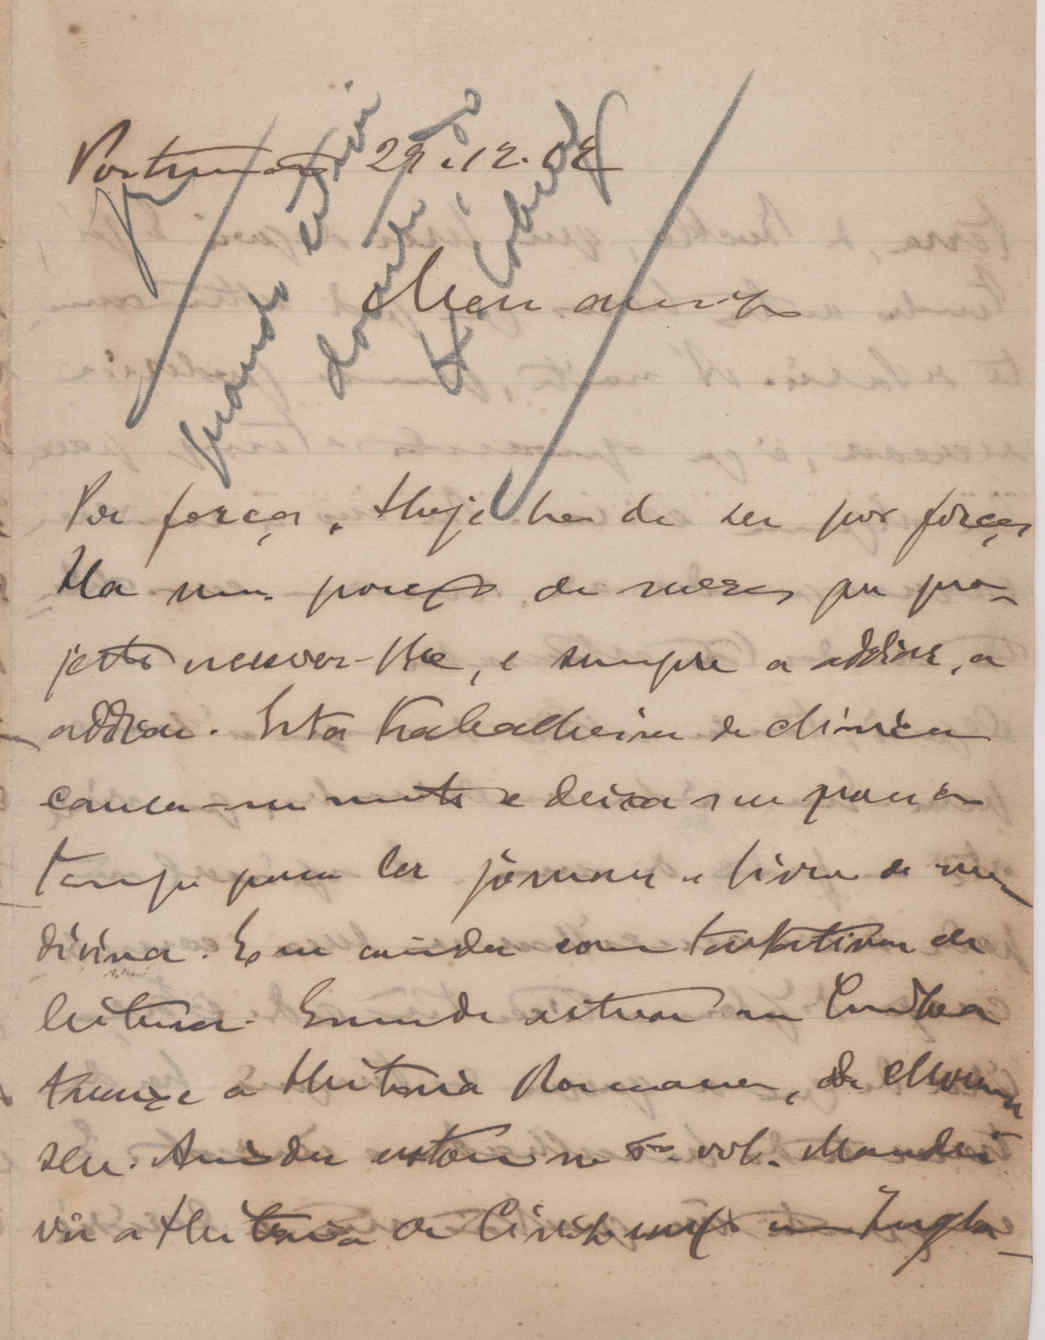 Portimão 29.12.02
quando estive
doente
Meu amigo
Por força. Hoje ha de ser por força
Ha um pouco de mezes que pro-
jecto escrever-lhe, e sempre a addiar, a
addiar. Esta trabalheira da clinica
cança-me muito e deixa-me pouco
tempo para ler jornaes e livros de me
dicina. E eu ainda com tentativas de
leitura. Quando estive em Lisboa
trouxe a Historia Romana, de Momm
sen. Ainda estou no 5º vol. Mandei
vir a Historia da Civilisação em Ingla-